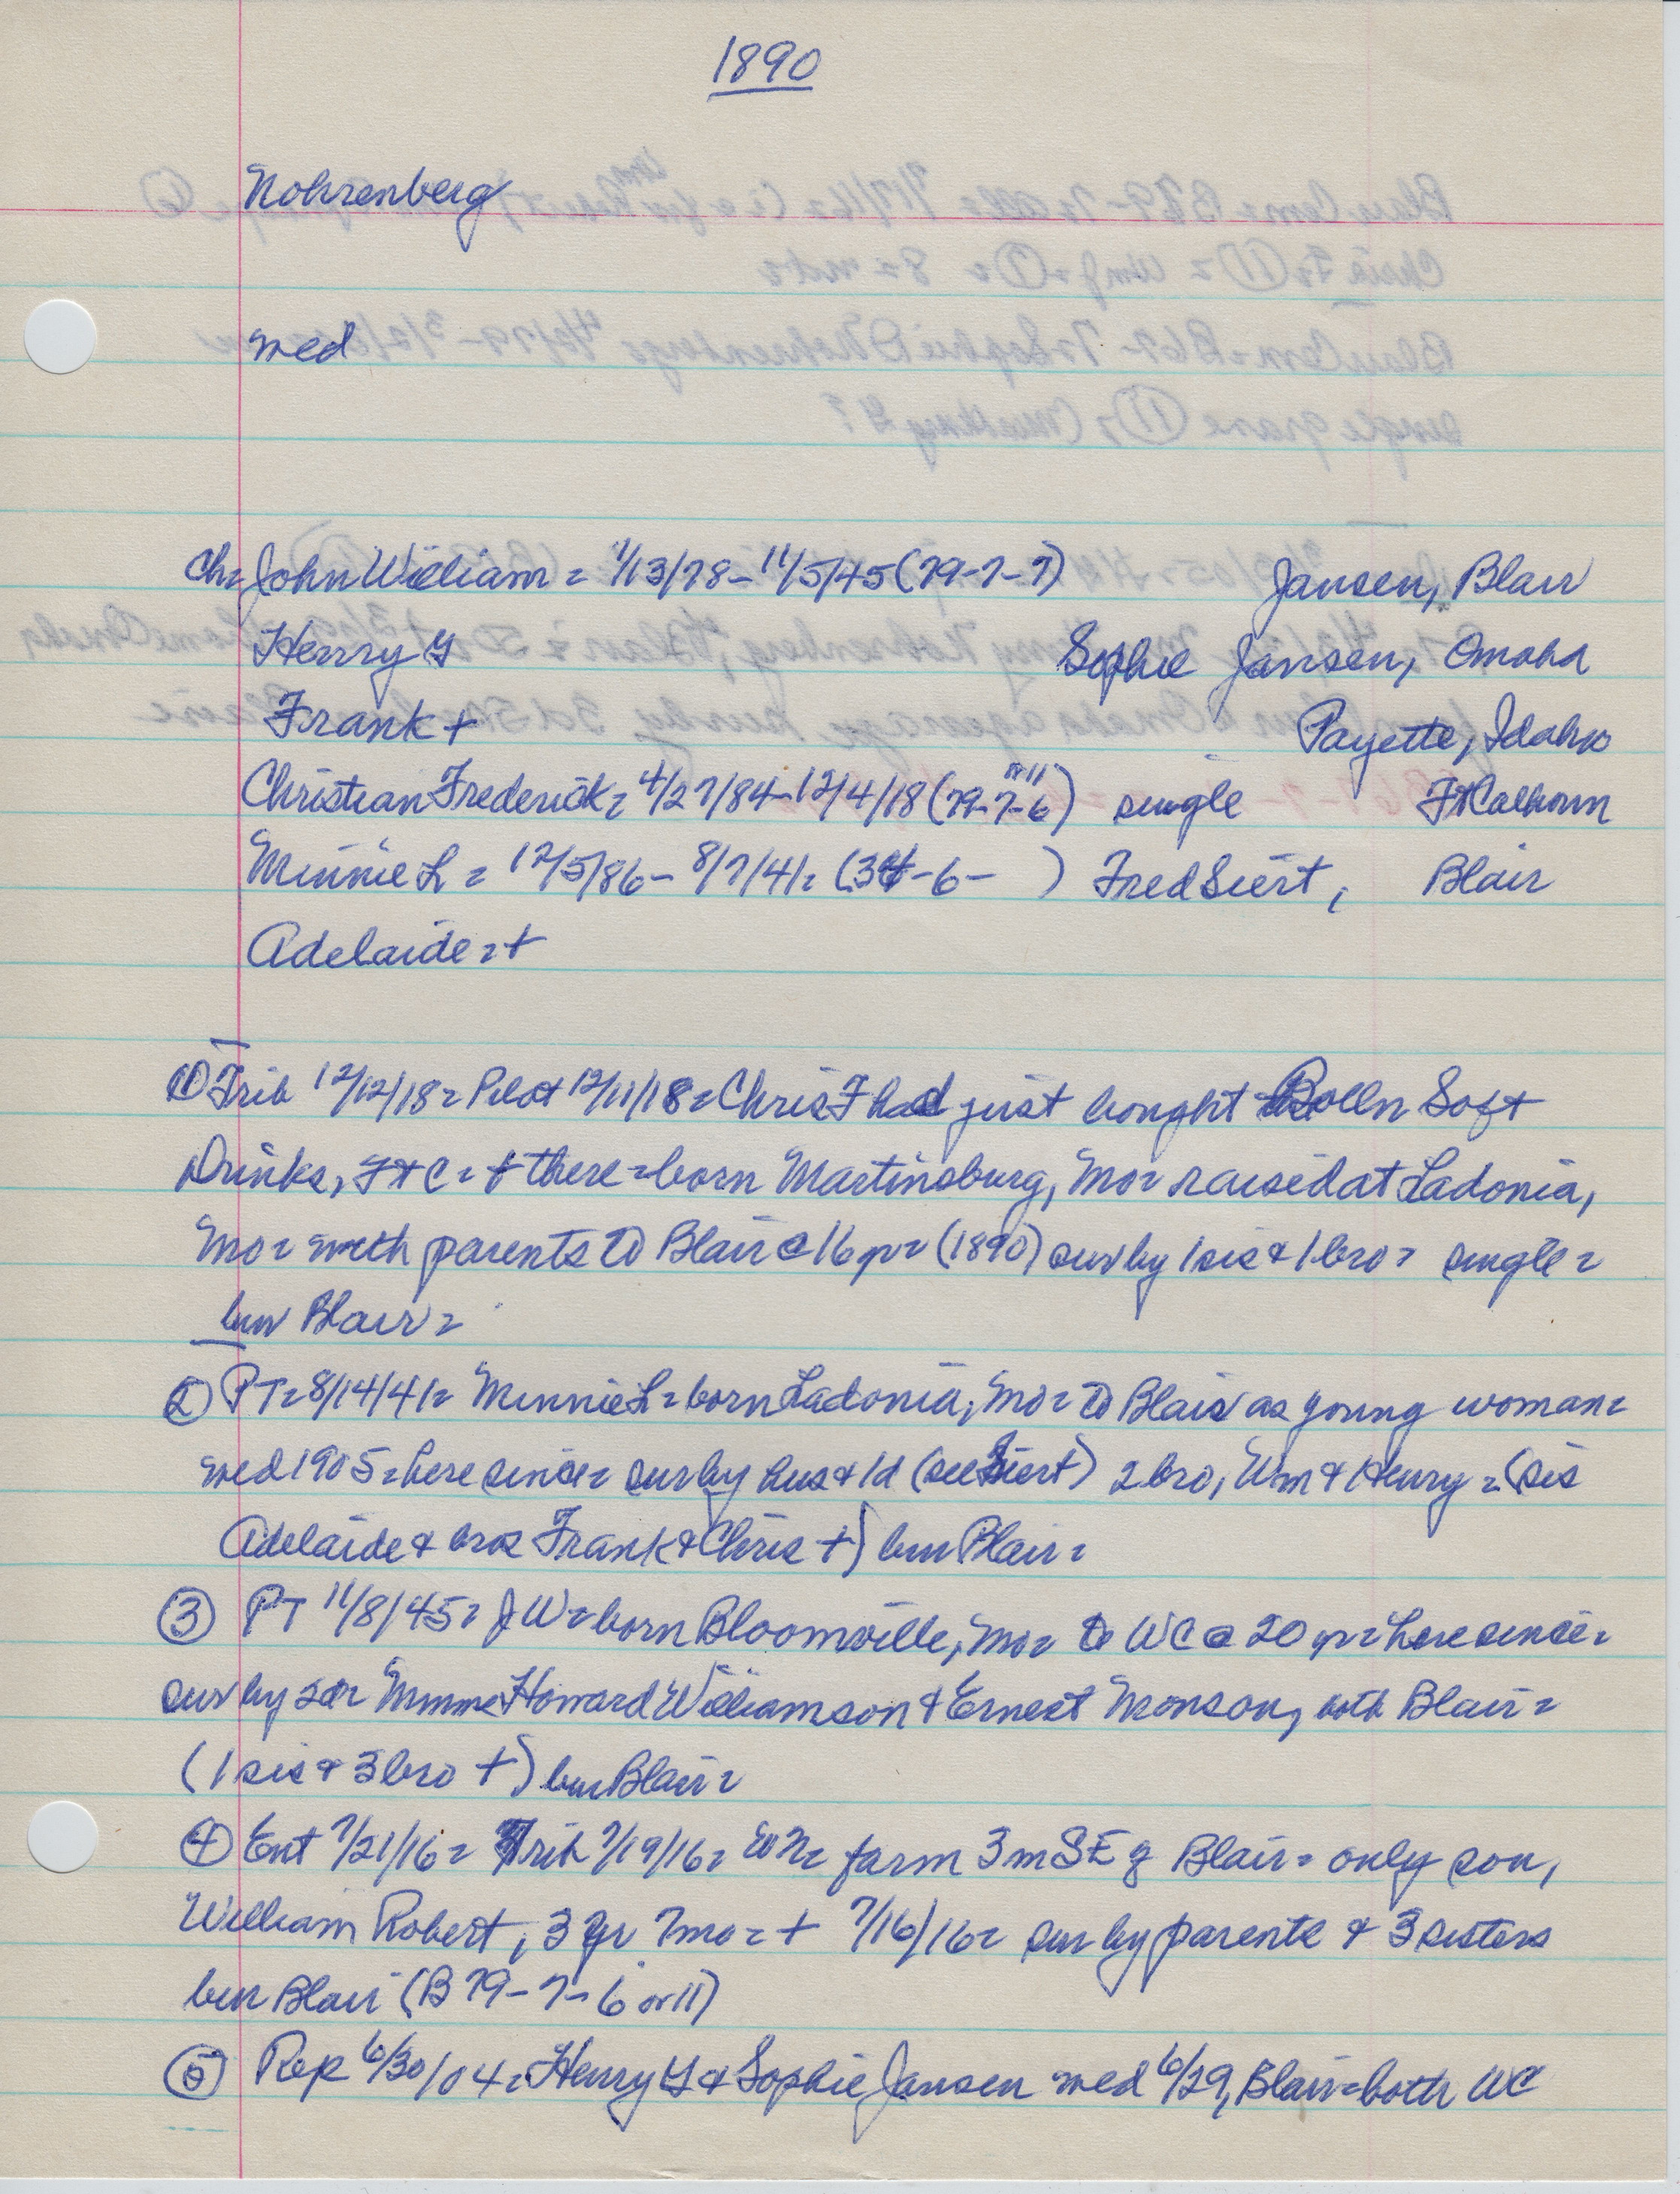 1890
Nohrenberg
wed
Ch= John William = 1/13/78 - 11/5/45 (79-7-7) Jansen, Blair
Henry G Sophie Jansen, Omaha
Frank + Payette, Idaho
Christian Frederick = 4/27/84 - 12/4/18 (79-7-6 or 11) single Ft Calhoun
Minnie L = 12/5/86 - 8/7/41 = (34-6- ) Fred Siert, Blair
Adelaide = +
① Trib 12/12/18 = Pilot 12/11/18 = Chris F had just bought Bolln Soft
Drinks, Ft C = + there = born Martinsburg, Mo = raised at Ladonia,
Mo = with parents to Blair @ 16 yr = (1890) sur by 1 sis & 1 bro = single =
bur Blair =
② PT = 8/14/41 = Minnie L = born Ladonia, Mo = to Blair as young woman =
wed 1905 = here since = sur by hus & 1d (see Siert) 2 bro, Wm & Henry = (sis
Adelaide & bros Frank & Chris +) bur Blair =
③ PT 11/8/45 = JW = born Bloomville, Mo = to WC @ 20 yr = here since =
sur by 2d= Mmme Howard Williamson & Ernest Monson, both Blair =
(1 sis & 3 bro +) bur Blair =
④ Ent 7/21/16 = Trib 7/19/16 = WN = farm 3 m SE of Blair = only son,
William Robert, 3 yr 7 mo = + 7/16/16 = sur by parents & 3 sisters
bur Blair (B 79-7-6 or 11)
⑤ Rep 6/30/04 = Henry G & Sophie Jansen wed 6/29, Blair = both WC